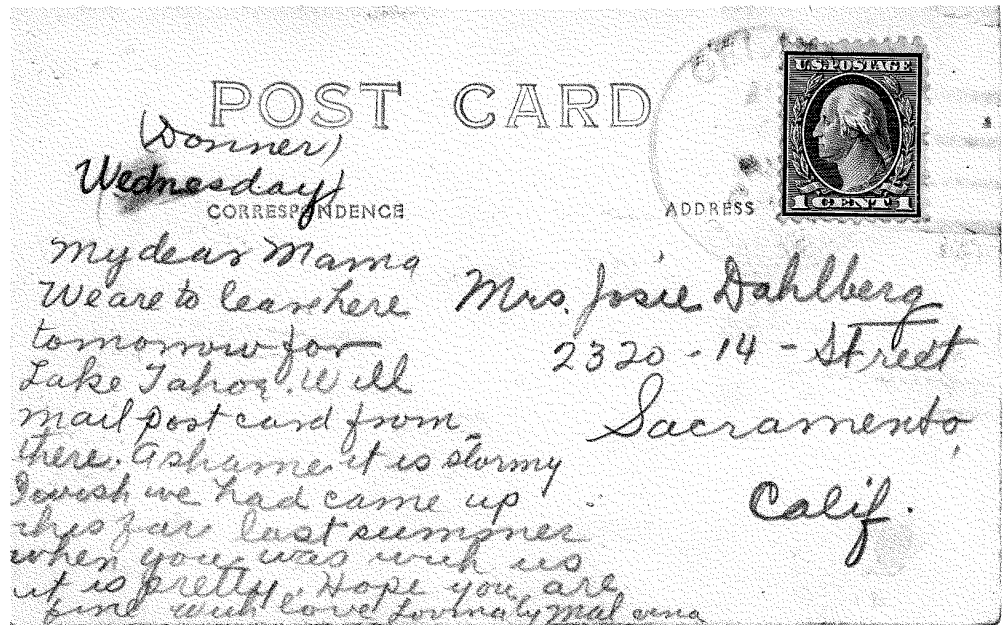 POST CARD
U.S. POSTAGE
1 CENT 1
(Donner)
Wednesday)
CORRESPONDENCE
ADDRESS
My dear Mama
We are to leave here
tomorrow for
Lake Tahoe. Will
mail post card from
there. Ashame it is stormy
I wish we had came up
this far last summer
when you was with us
it is pretty. Hope you are
fine with love Lovingly
Mrs. Josie Dahlberg
2320 - 14 - Street
Sacramento,
Calif.